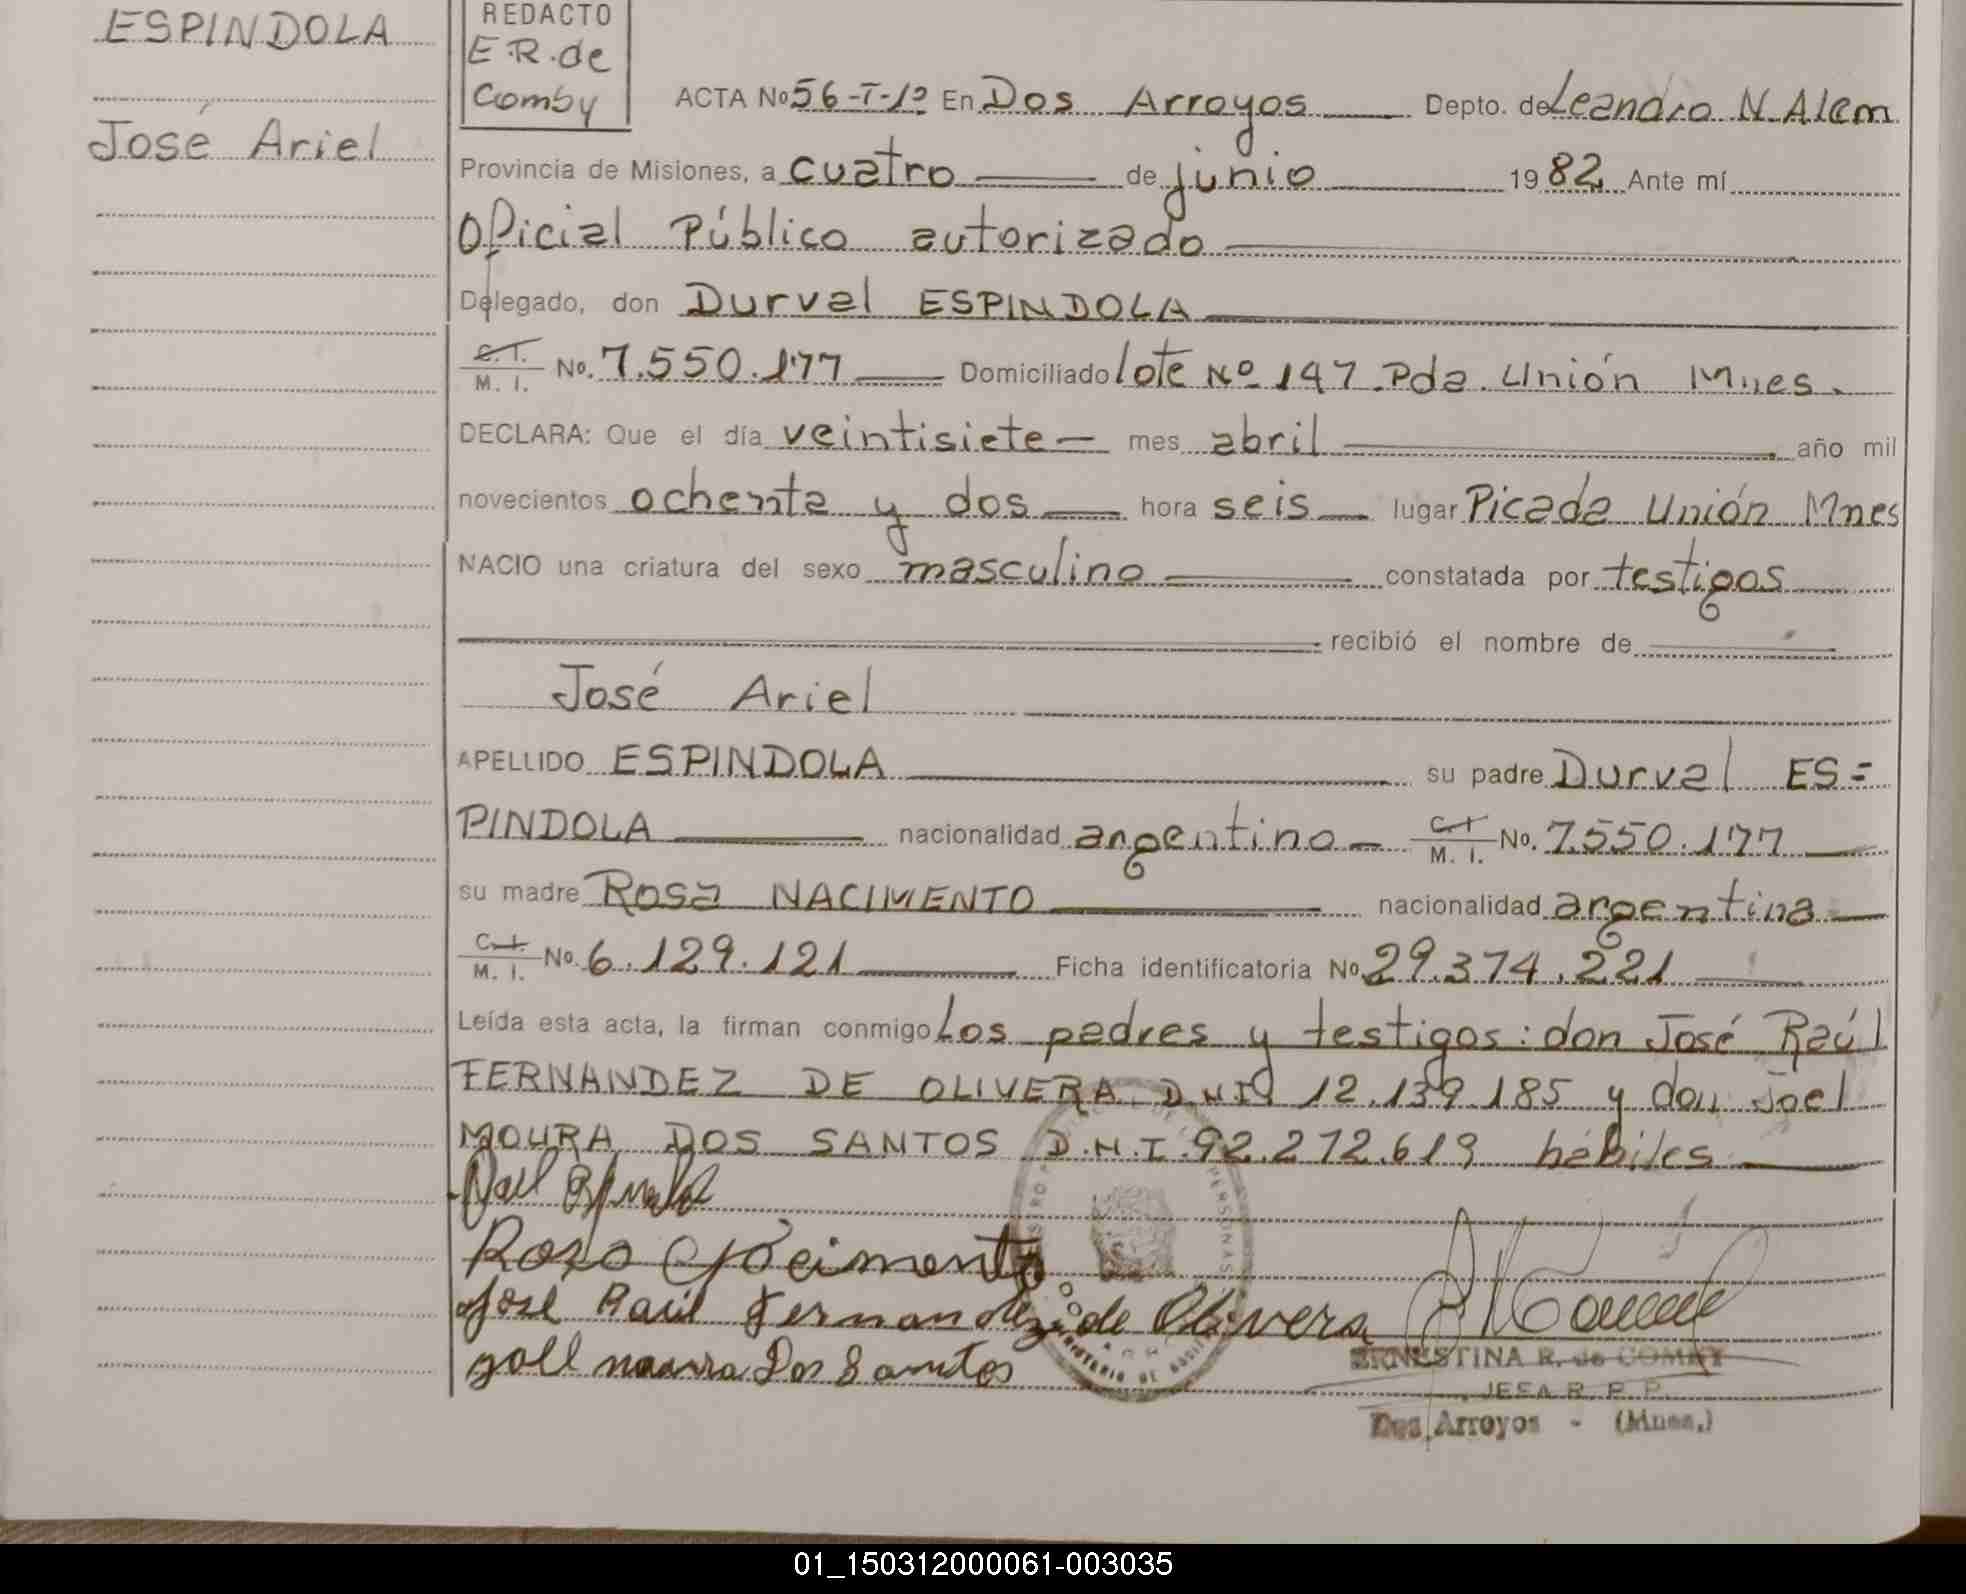 ESPINDOLA
José Ariel
REDACTO
E.R. de
Comby
ACTA No 56-T-1º En Dos Arroyos Depto. de Leandro N. Alem
Provincia de Misiones, a cuatro de junio 1982 Ante mí
Oficial Público autorizado
Delegado, don Durval ESPINDOLA
C.I. M. I. No. 7.550.177 Domiciliado lote Nº 147 Pda. Unión Mnes.
DECLARA: Que el día veintisiete mes abril año mil
novecientos ochenta y dos hora seis lugar Picada Unión Mnes
NACIO una criatura del sexo masculino constatada por testigos
recibió el nombre de
José Ariel
APELLIDO ESPINDOLA su padre Durval ES=
PINDOLA nacionalidad argentino C.I. M. I. No. 7.550.177
su madre Rosa NACIMENTO nacionalidad argentina
C.I. M. I. No. 6.129.121 Ficha identificatoria No 29.374.221
Leída esta acta, la firman conmigo Los padres y testigos: don José Raúl
FERNANDEZ DE OLIVERA D.N.I. 12.139.185 y don Joel
MOURA DOS SANTOS D.N.I. 92.272.619 hábiles
Jose Raúl Fernandez de Olivera
Dos Santos
ERNESTINA R. de COMBY
JEFA R. P. P.
Dos Arroyos - (Mnes.)
01_150312000061-003035